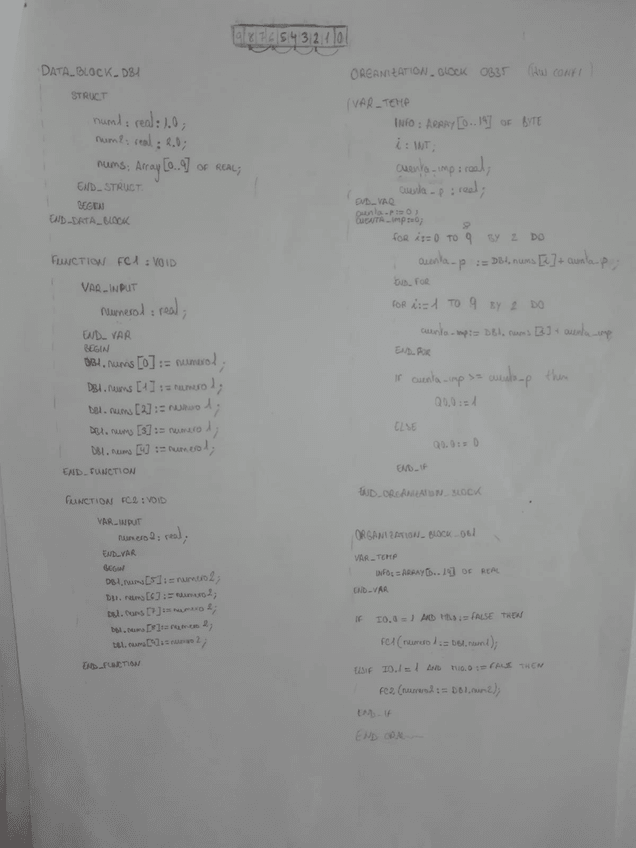 9 8 7 6 5 4 3 2 1 0
DATA_BLOCK_DB1
STRUCT
num1: real: 1.0;
num2: real: 2.0;
nums: Array[0..9] OF REAL;
END_STRUCT
BEGIN
END_DATA_BLOCK
FUNCTION FC1: VOID
VAR_INPUT
numero1: real;
END_VAR
BEGIN
DB1.nums[0]:= numero1;
DB1.nums[1]:= numero1;
DB1.nums[2]:= numero1;
DB1.nums[3]:= numero1;
DB1.nums[4]:= numero1;
END_FUNCTION
FUNCTION FC2: VOID
VAR_INPUT
numero2: real;
END_VAR
BEGIN
DB1.nums[5]:= numero2;
DB1.nums[6]:= numero2;
DB1.nums[7]:= numero2;
DB1.nums[8]:= numero2;
DB1.nums[9]:= numero2;
END_FUNCTION
ORGANIZATION_BLOCK OB35 (HW CONFI)
VAR_TEMP
INFO: ARRAY[0..19] OF BYTE
i: INT;
cuenta_imp: real;
cuenta_p: real;
END_VAR
cuenta_p:=0;
CUENTA_imp:=0;
FOR i:=0 TO 9 BY 2 DO
cuenta_p := DB1.nums[i]+ cuenta_p;
END_FOR
FOR i:=1 TO 9 BY 2 DO
cuenta_imp:= DB1.nums[i] + cuenta_imp
END_FOR
IF cuenta_imp >= cuenta_p then
Q0.0:=1
ELSE
Q0.0:= 0
END_IF
END_ORGANIZATION_BLOCK
ORGANIZATION_BLOCK_OB1
VAR_TEMP
INFO:=ARRAY[0..19] OF REAL
END_VAR
IF I0.0=1 AND M0.0:=FALSE THEN
FC1(numero1:=DB1.num1);
ELSIF I0.1=1 AND M0.0:=FALSE THEN
FC2(numero2:= DB1.num2);
END_IF
END